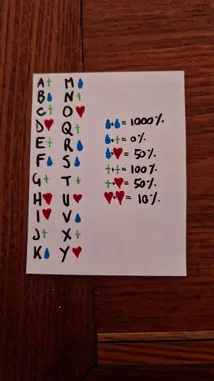 A + M 💧
B 💧 N +
C + O ❤
D ❤ Q +
E + R 💧
F 💧 S 💧
G + T +
H ❤ U ❤
I ❤ V 💧
J + X +
K 💧 Y ❤
💧+💧 = 1000%
💧++ = 0%
💧+❤ = 50%
+++ = 100%
++❤ = 50%
❤+❤ = 10%